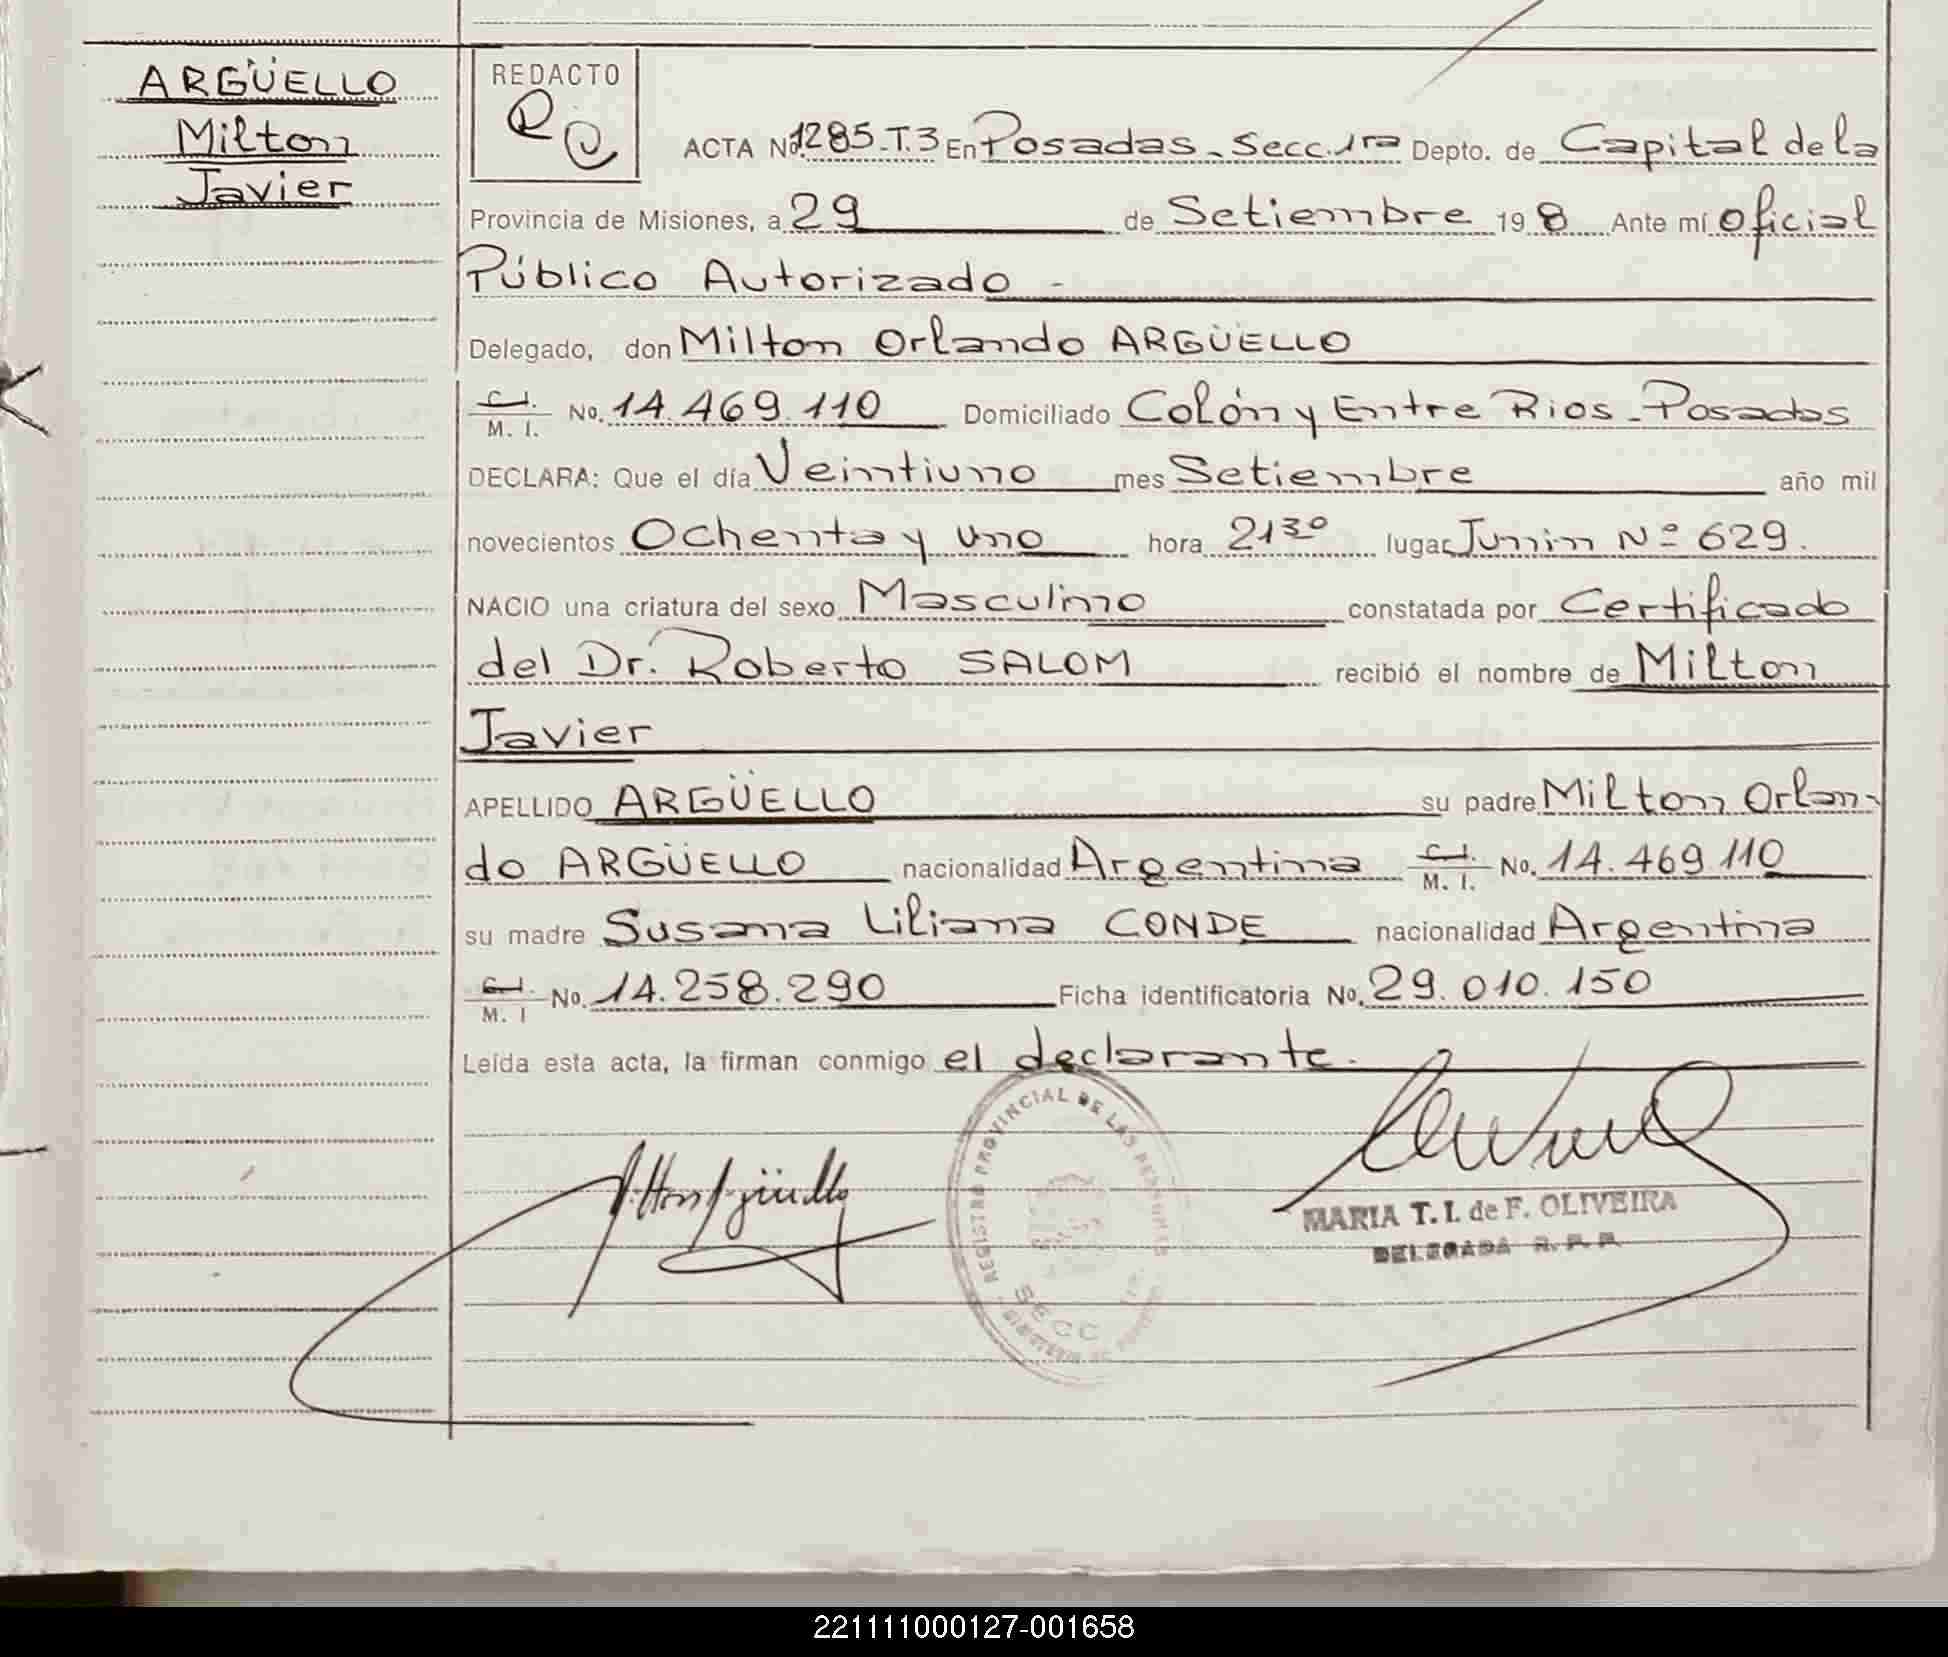 ARGÜELLO
Milton
Javier
REDACTO
ACTA No. 1285-T.3 En Posadas - Secc. 1ra Depto. de Capital de la
Provincia de Misiones, a 29 de Setiembre 19 8 Ante mí Oficial
Público Autorizado -
Delegado, don Milton Orlando ARGÜELLO
C.I. M. I. No. 14.469.110 Domiciliado Colón y Entre Rios - Posadas
DECLARA: Que el día Veintiuno mes Setiembre año mil
novecientos Ochenta y uno hora 21 30 lugar Junin Nº 629.
NACIO una criatura del sexo Masculino constatada por Certificado
del Dr. Roberto SALOM recibió el nombre de Milton
Javier
APELLIDO ARGÜELLO su padre Milton Orlan-
do ARGÜELLO nacionalidad Argentina C.I. M. I. No. 14.469.110
su madre Susana Liliana CONDE nacionalidad Argentina
C.I. M. I No. 14.258.290 Ficha identificatoria No. 29.010.150
Leída esta acta, la firman conmigo el declarante.
REGISTRO PROVINCIAL DE LAS PERSONAS
SECC 1ra.
MARIA T. I. de F. OLIVEIRA
DELEGADA R. P. P.
221111000127-001658